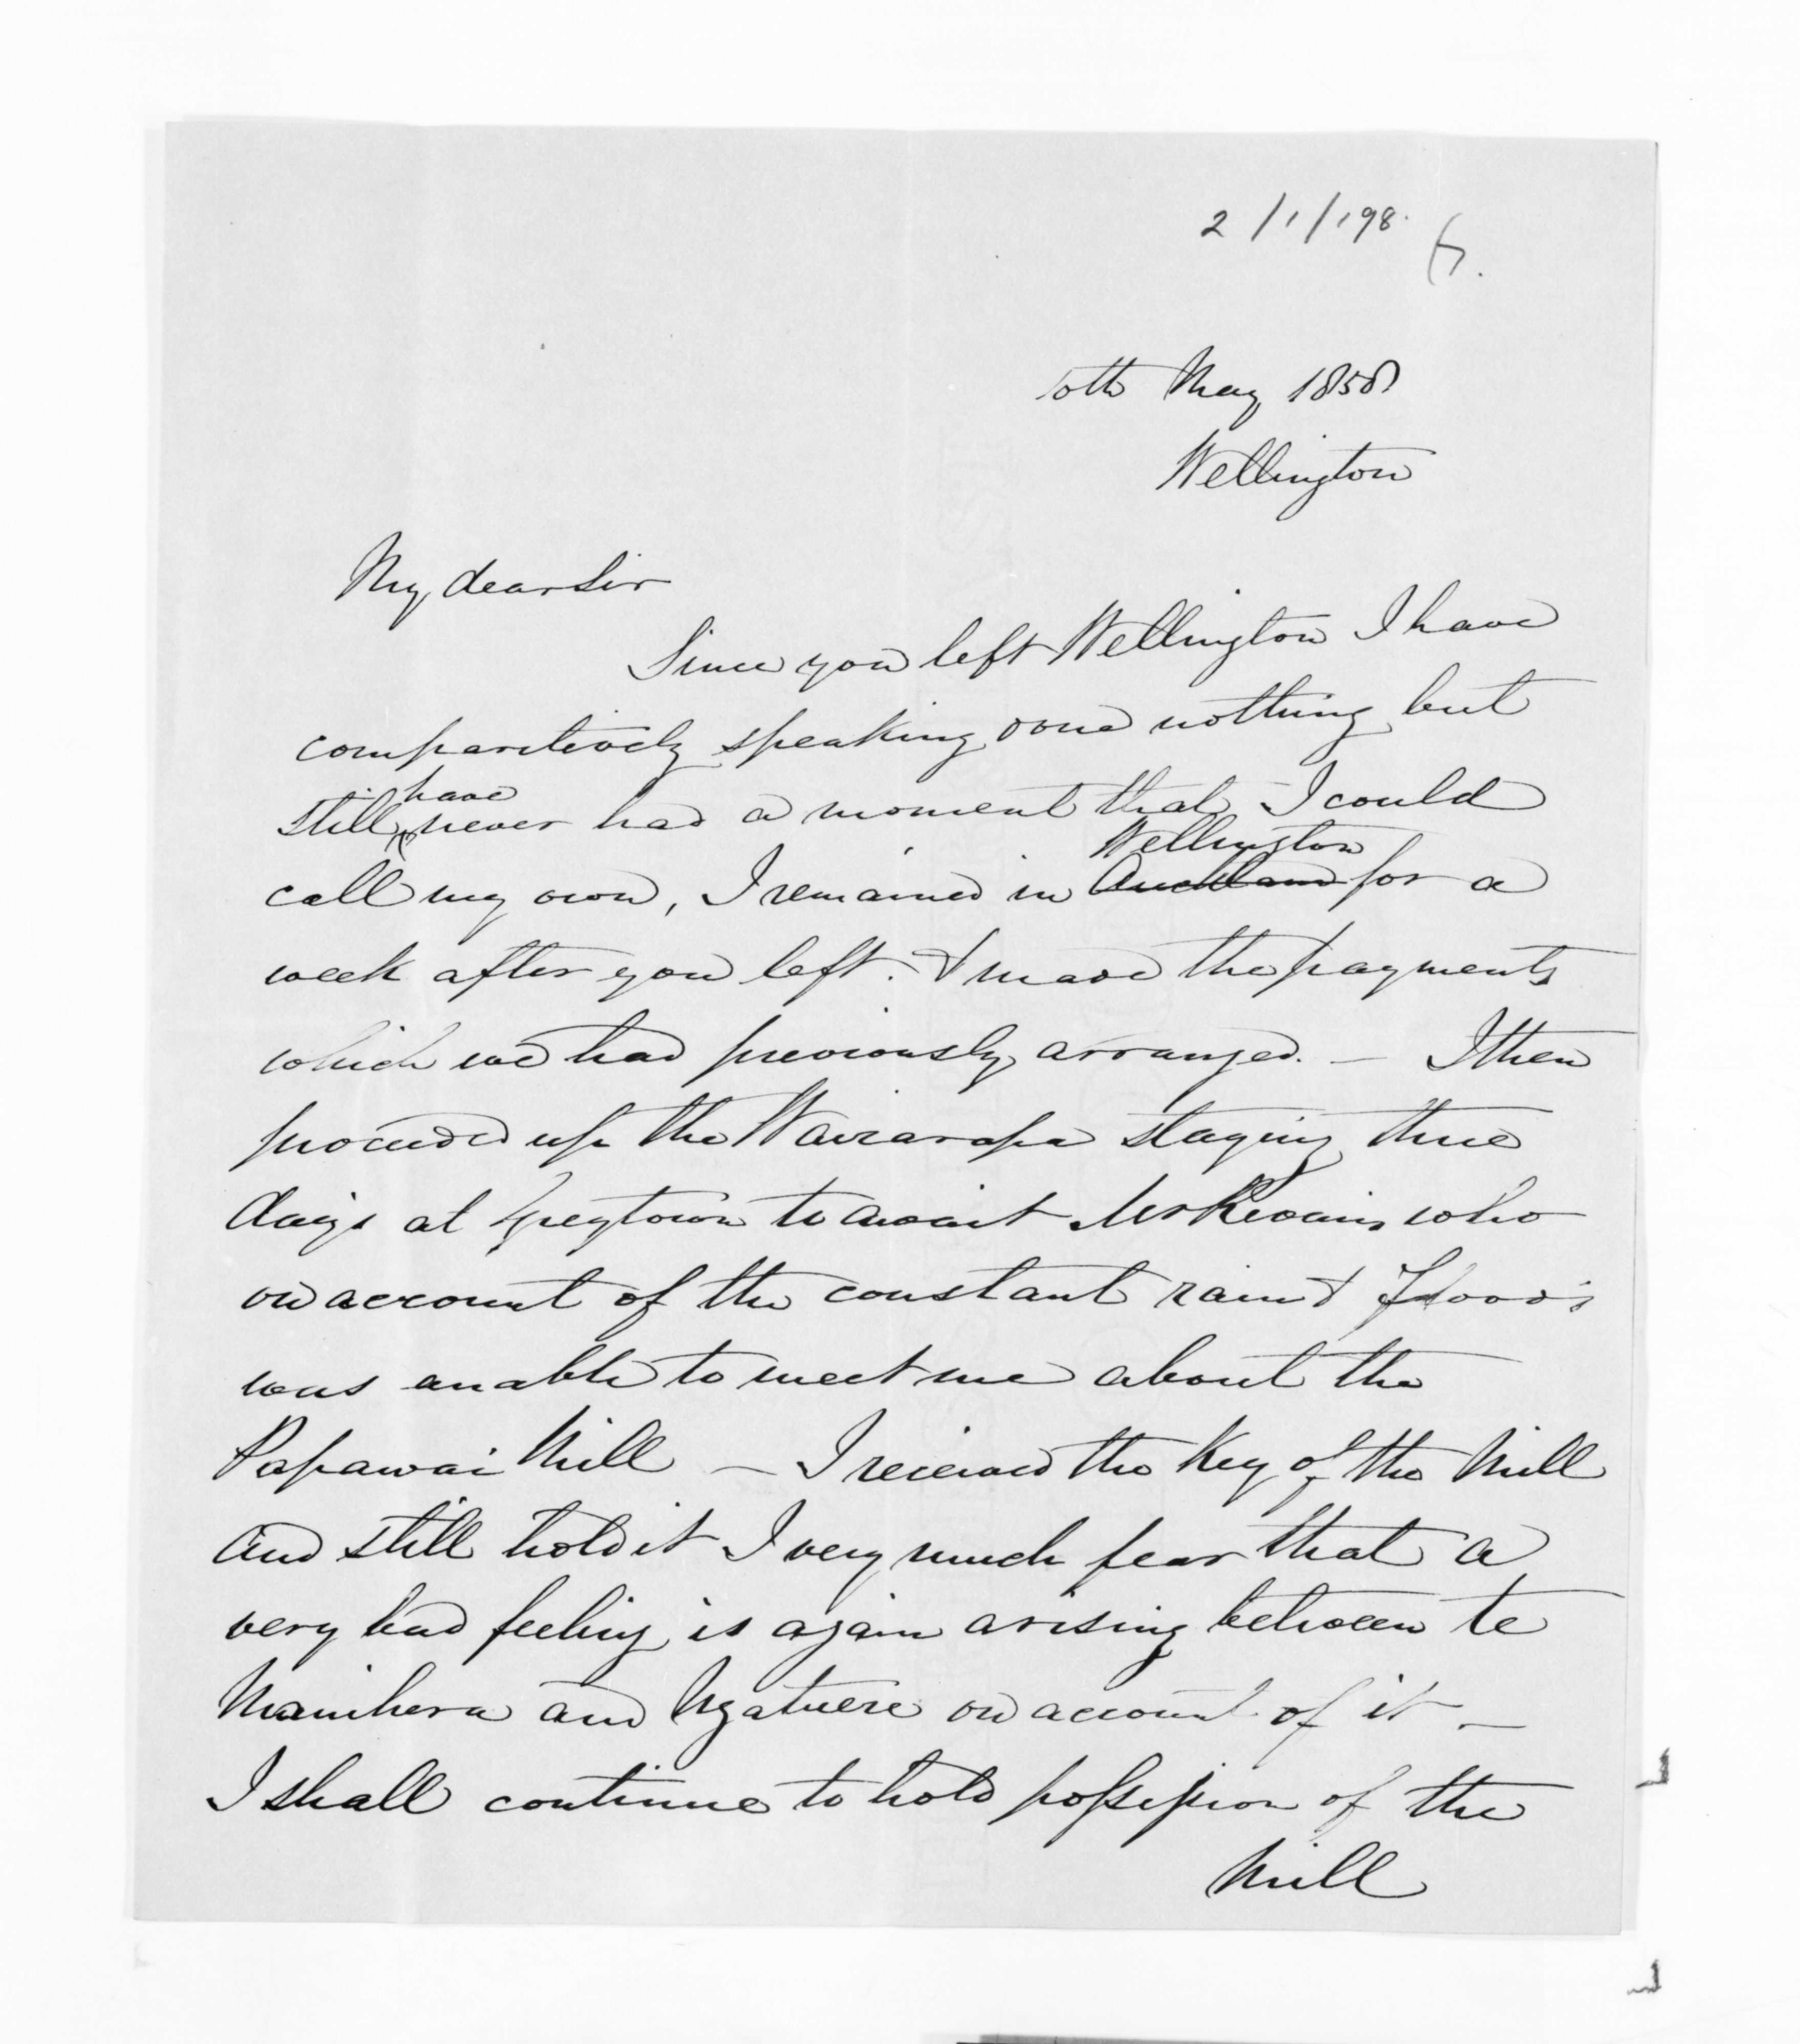 2/1/198.
10th May 1858
Wellington
My dear Sir
Since you left Wellington I have
comparitively speaking done nothing but
have
still never had a moment that I could
Wellington
call my own, I remained in Auckland for a
week after you left. & made the payments
which we had previously arranged. — I then
proceeded up the Wairarapa staying three
days at Greytown to await who
on account of the constant rain & Floods
was unable to meet me about the
Papawai Mill — I received the Key of the Mill
and still hold it I very much fear that a
very bad feeling is again arising between te
Manihera and Ngatuere on account of it —
I shall continue to hold possession of the
Mill